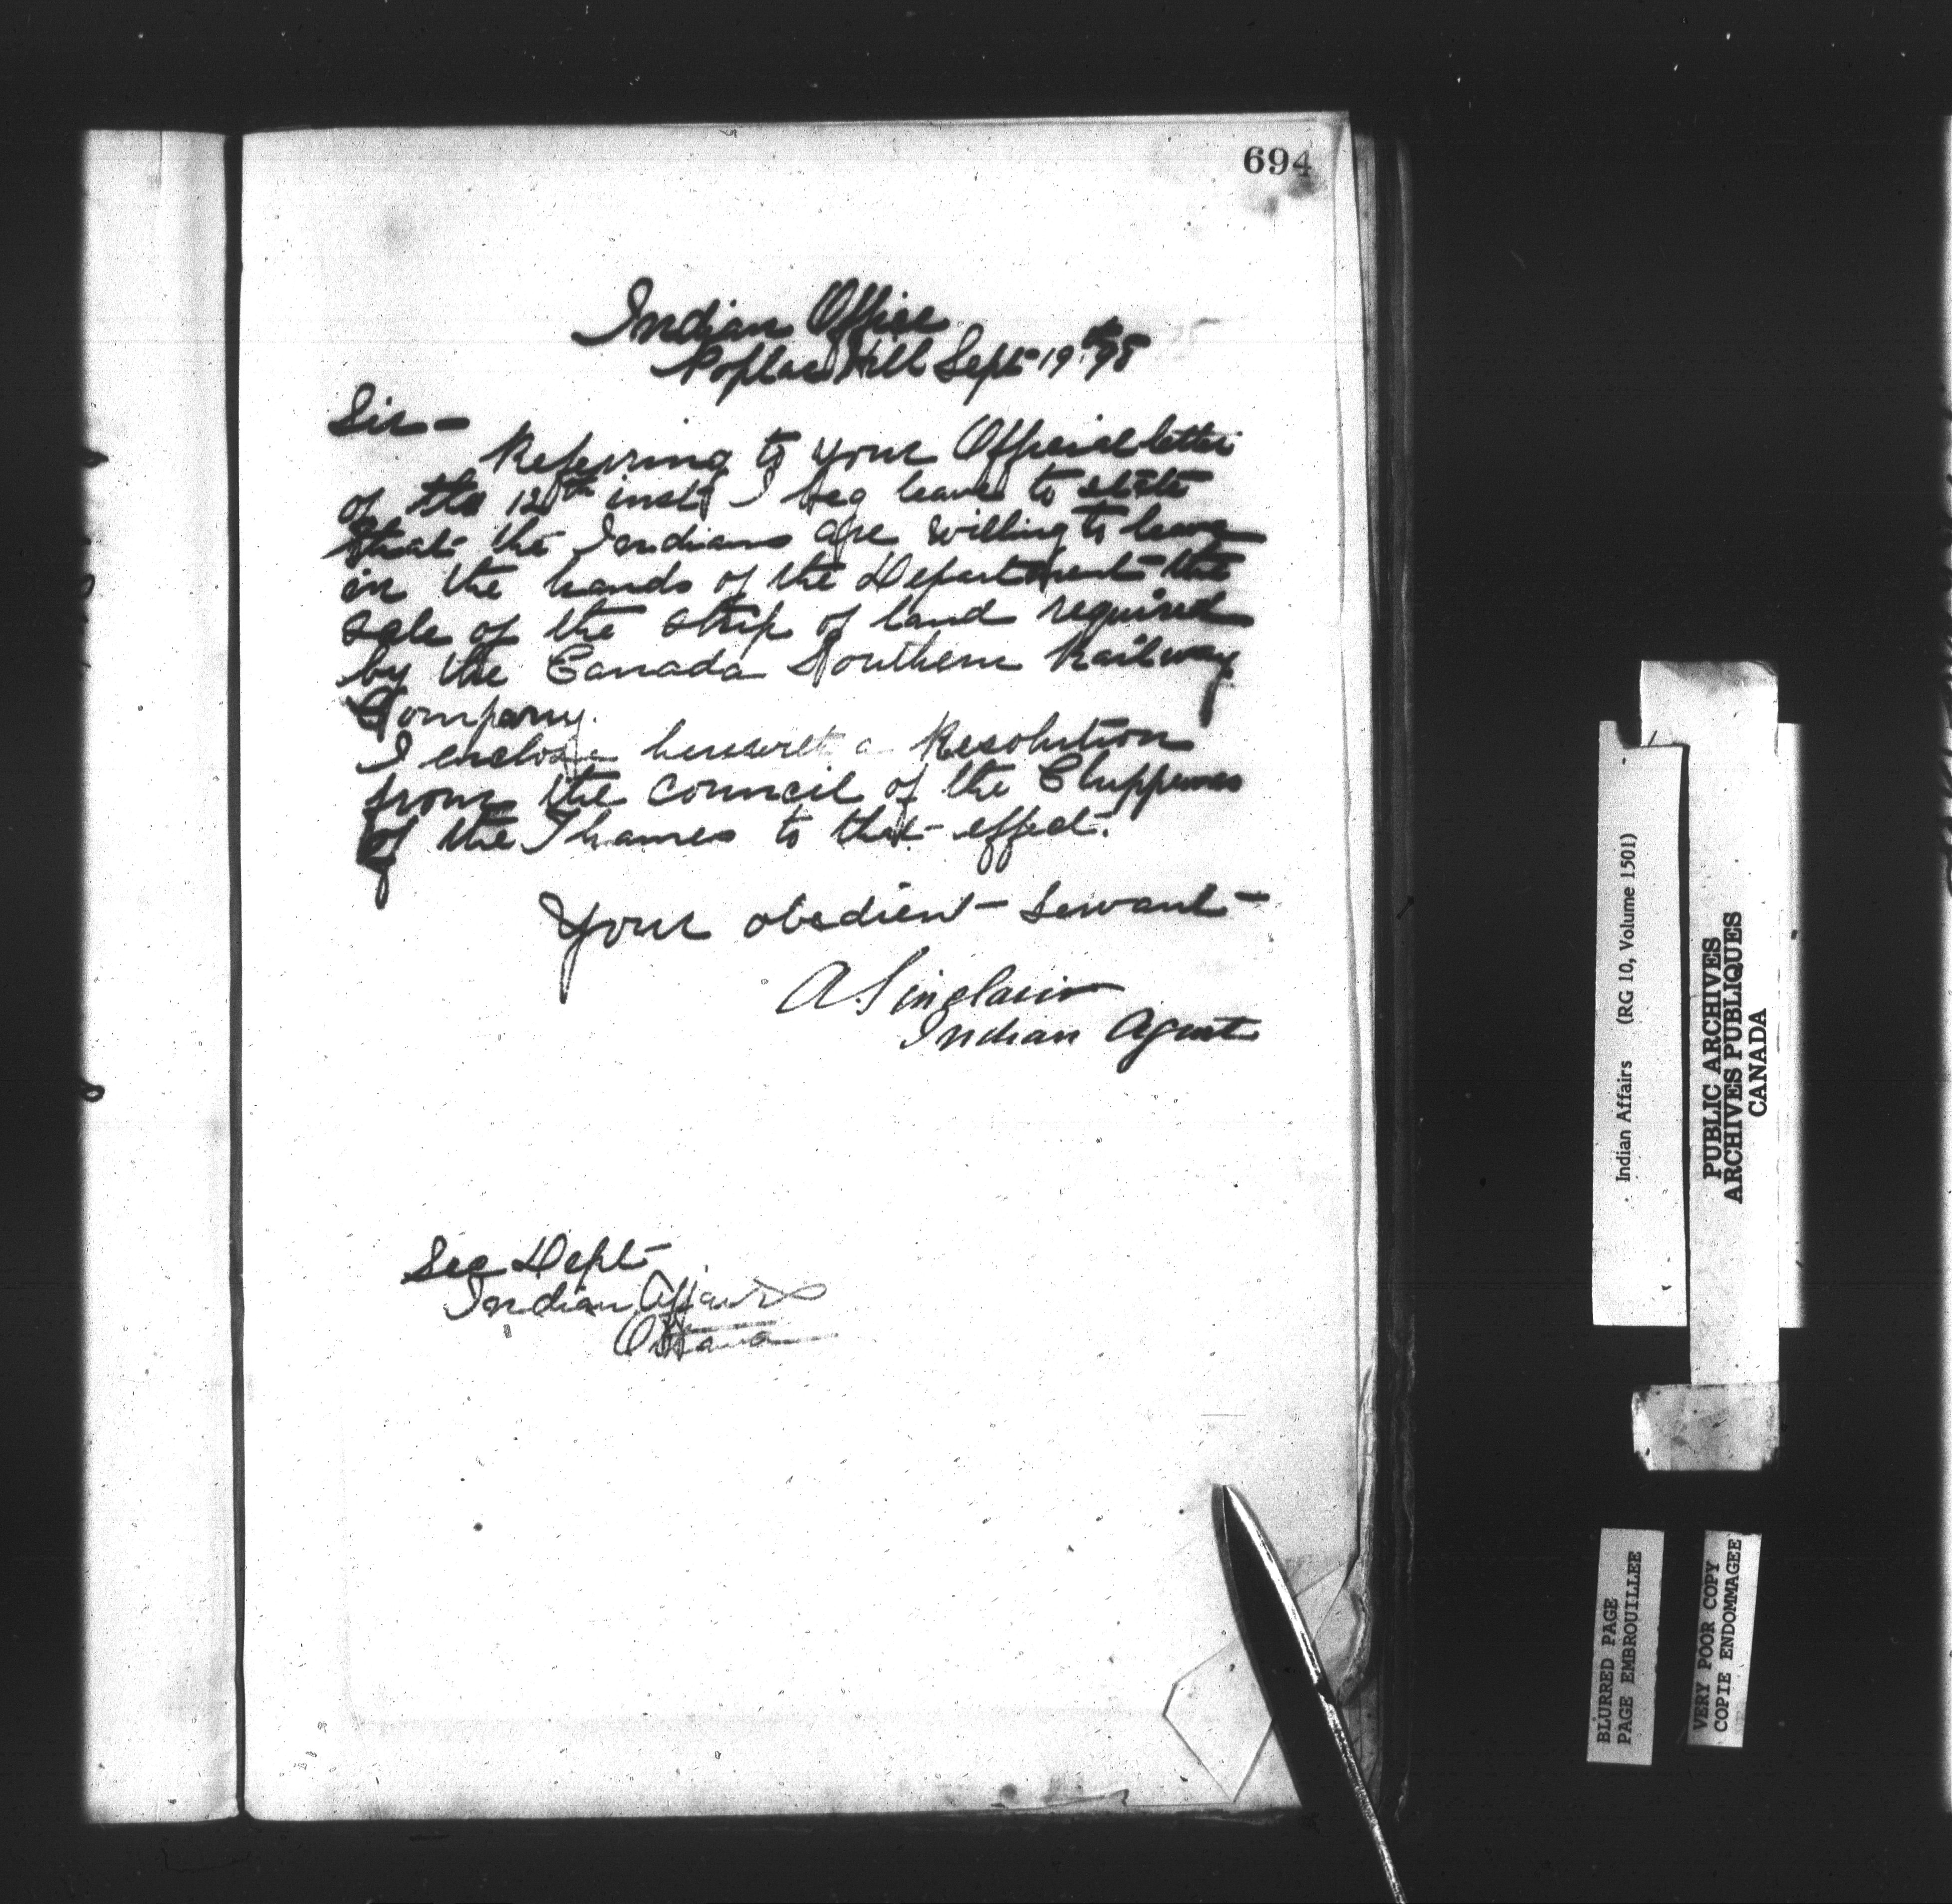 694
Indian Office
Poplar Hill Sept 19th 98
Sir -
Referring to your Official letter
of the 12th inst I beg leave to state
that the Indians are willing to leave
in the hands of the Department the
sale of the strip of land required
by the Canada Southern Railway
Company.
I enclose herewith a Resolution
from the council of the Chippewas
of the Thames to that effect.
Your obedient servant
A Sinclair
Indian Agent
Sec Dept
Indian Affairs
Ottawa
Indian Affairs (RG 10, Volume 1501)
PUBLIC ARCHIVES
ARCHIVES PUBLIQUES
CANADA
BLURRED PAGE
PAGE EMBROUILLEE
VERY POOR COPY
COPIE ENDOMMAGEE